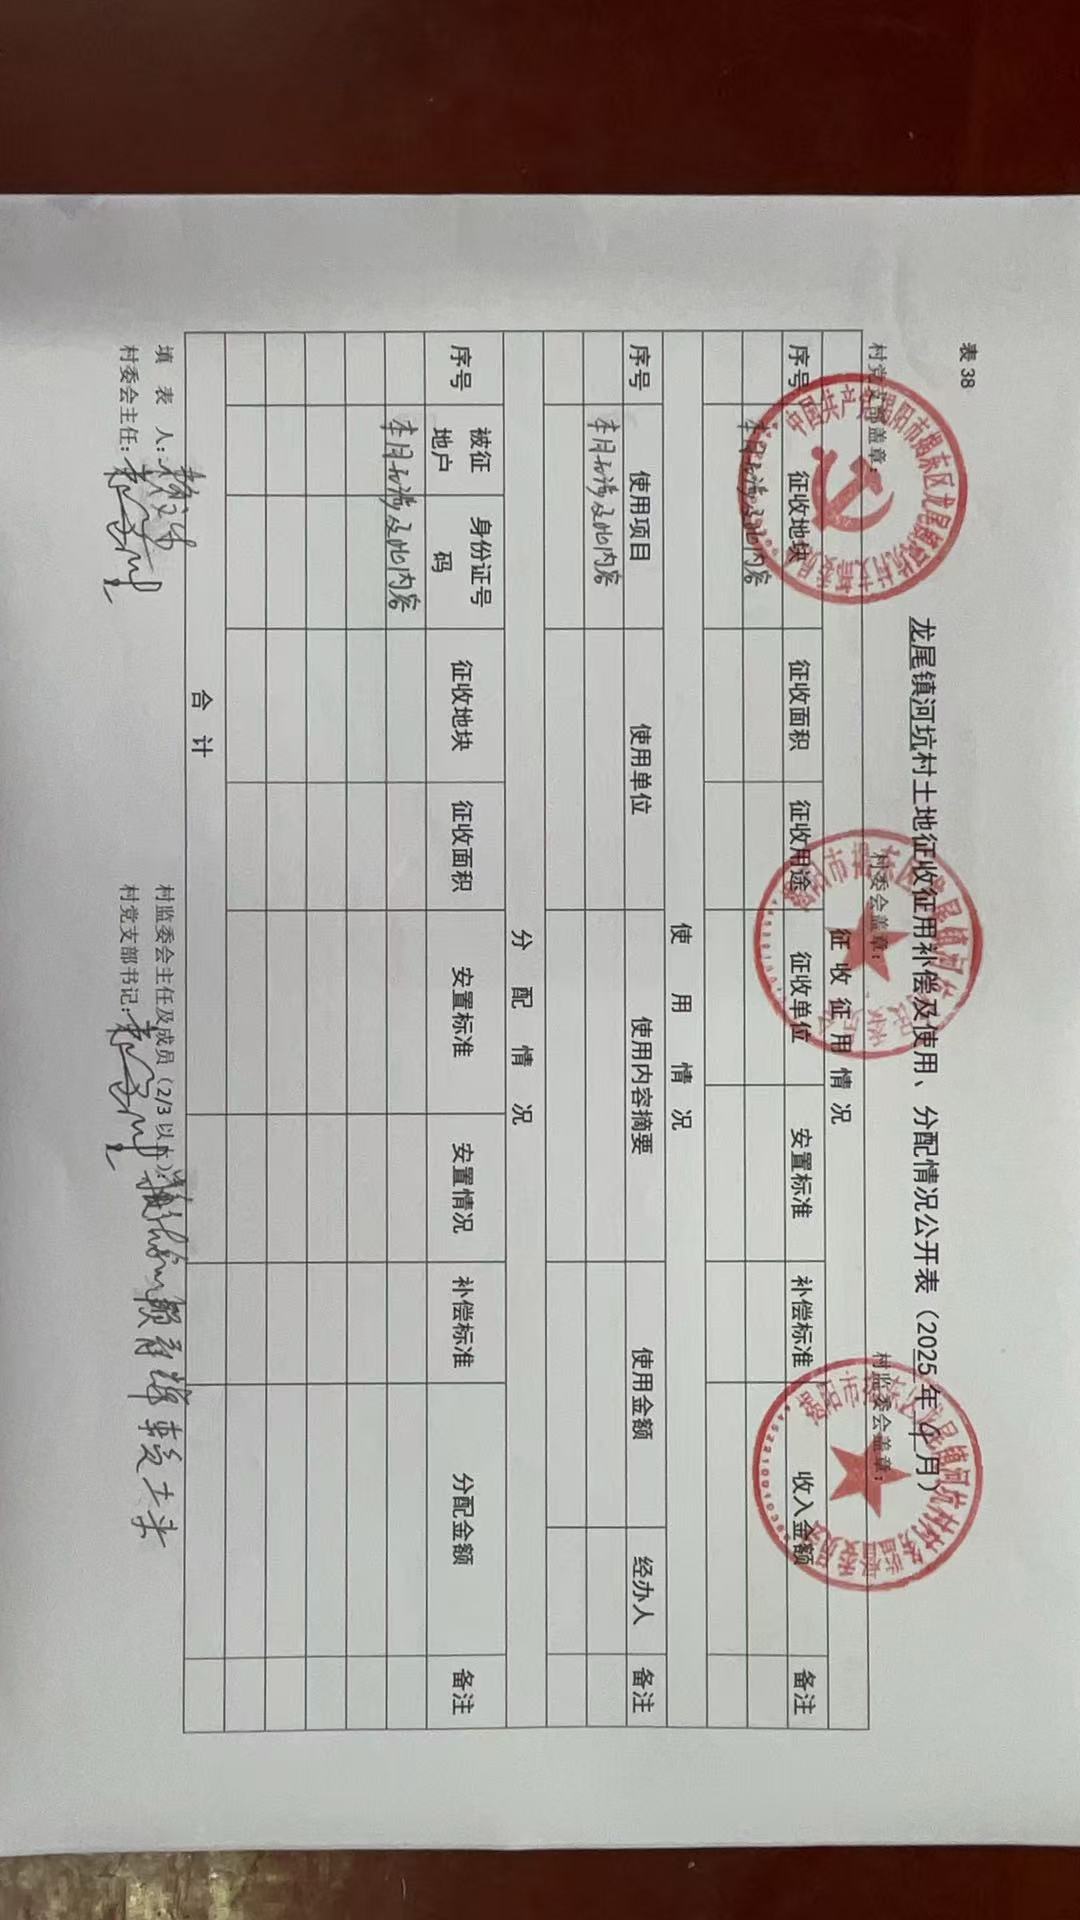 表 38
龙尾镇河坑村土地征收征用补偿及使用、分配情况公开表（2025 年 4 月）
村党支部盖章： 村委会盖章： 村监委会盖章：
征 收 征 用 情 况
序号 征收地块 征收面积 征收用途 征收单位 安置标准 补偿标准 收入金额 备注
本月无涉及此内容
使 用 情 况
序号 使用项目 使用单位 使用内容摘要 使用金额 经办人 备注
本月无涉及此内容
分 配 情 况
序号 被征地户 身份证号码 征收地块 征收面积 安置标准 安置情况 补偿标准 分配金额 备注
本月无涉及此内容
合 计
填 表 人： 村监委会主任及成员（2/3 以上）：
村委会主任： 村党支部书记：